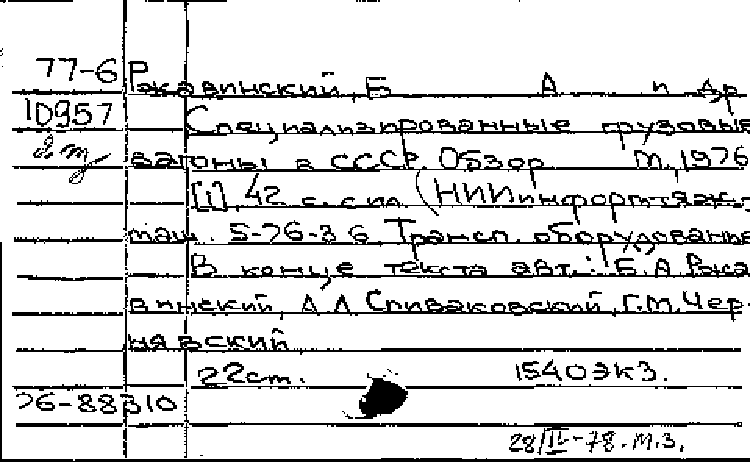 77-6 Ржавинский, Б А и др
10957 Специализированные грузовые
2 т вагоны в СССР. Обзор М., 1976
[1], 42 с. с ил. (НИИинформтяж-
маш. 5-76-36, Трансп. оборудование
В конце текста авт.: Б.А Ржа-
винский, А Л Спиваковский, Г.М. Чер-
нявский
22 см. 1540 экз.
76-88310
28/IV-78. М.З.